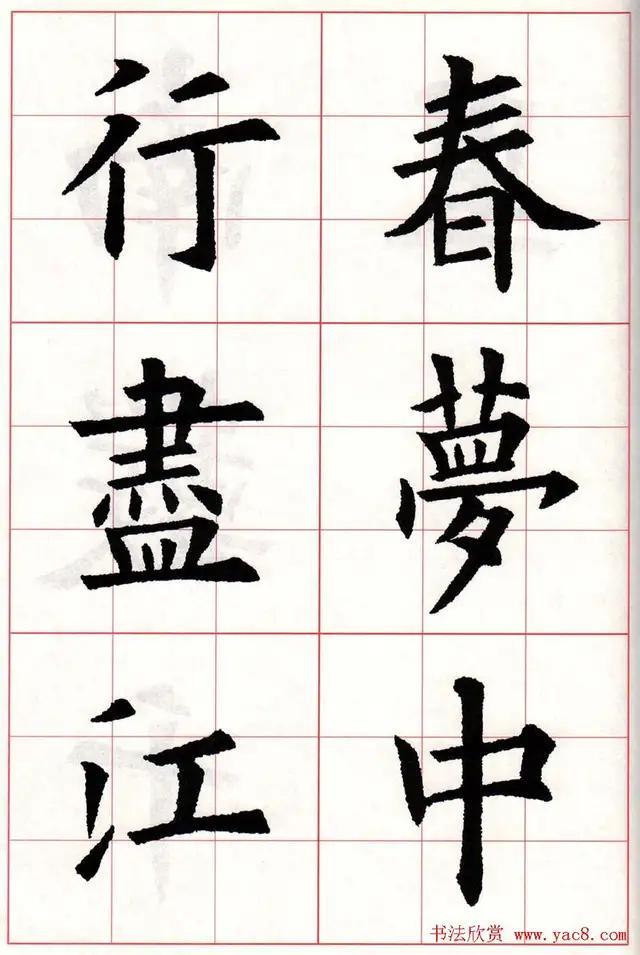 春夢中
行盡江
书法欣赏 www.yac8.com